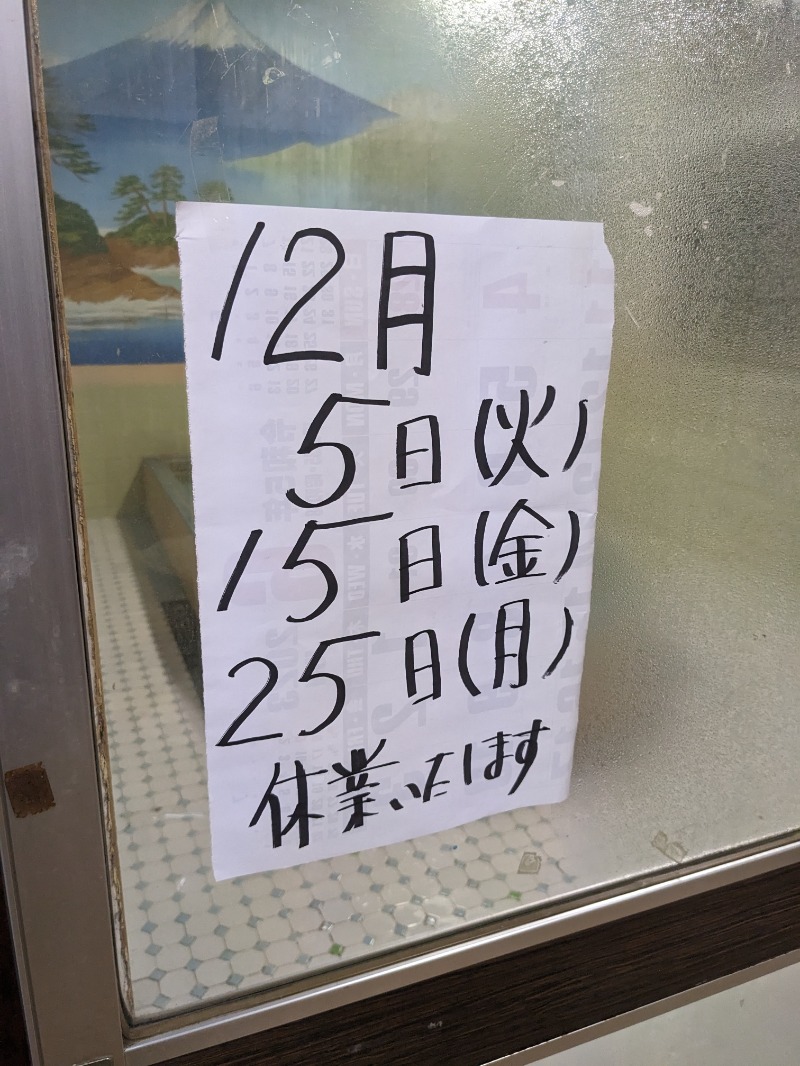 12月
5日(火)
15日(金)
25日(月)
休業いたします